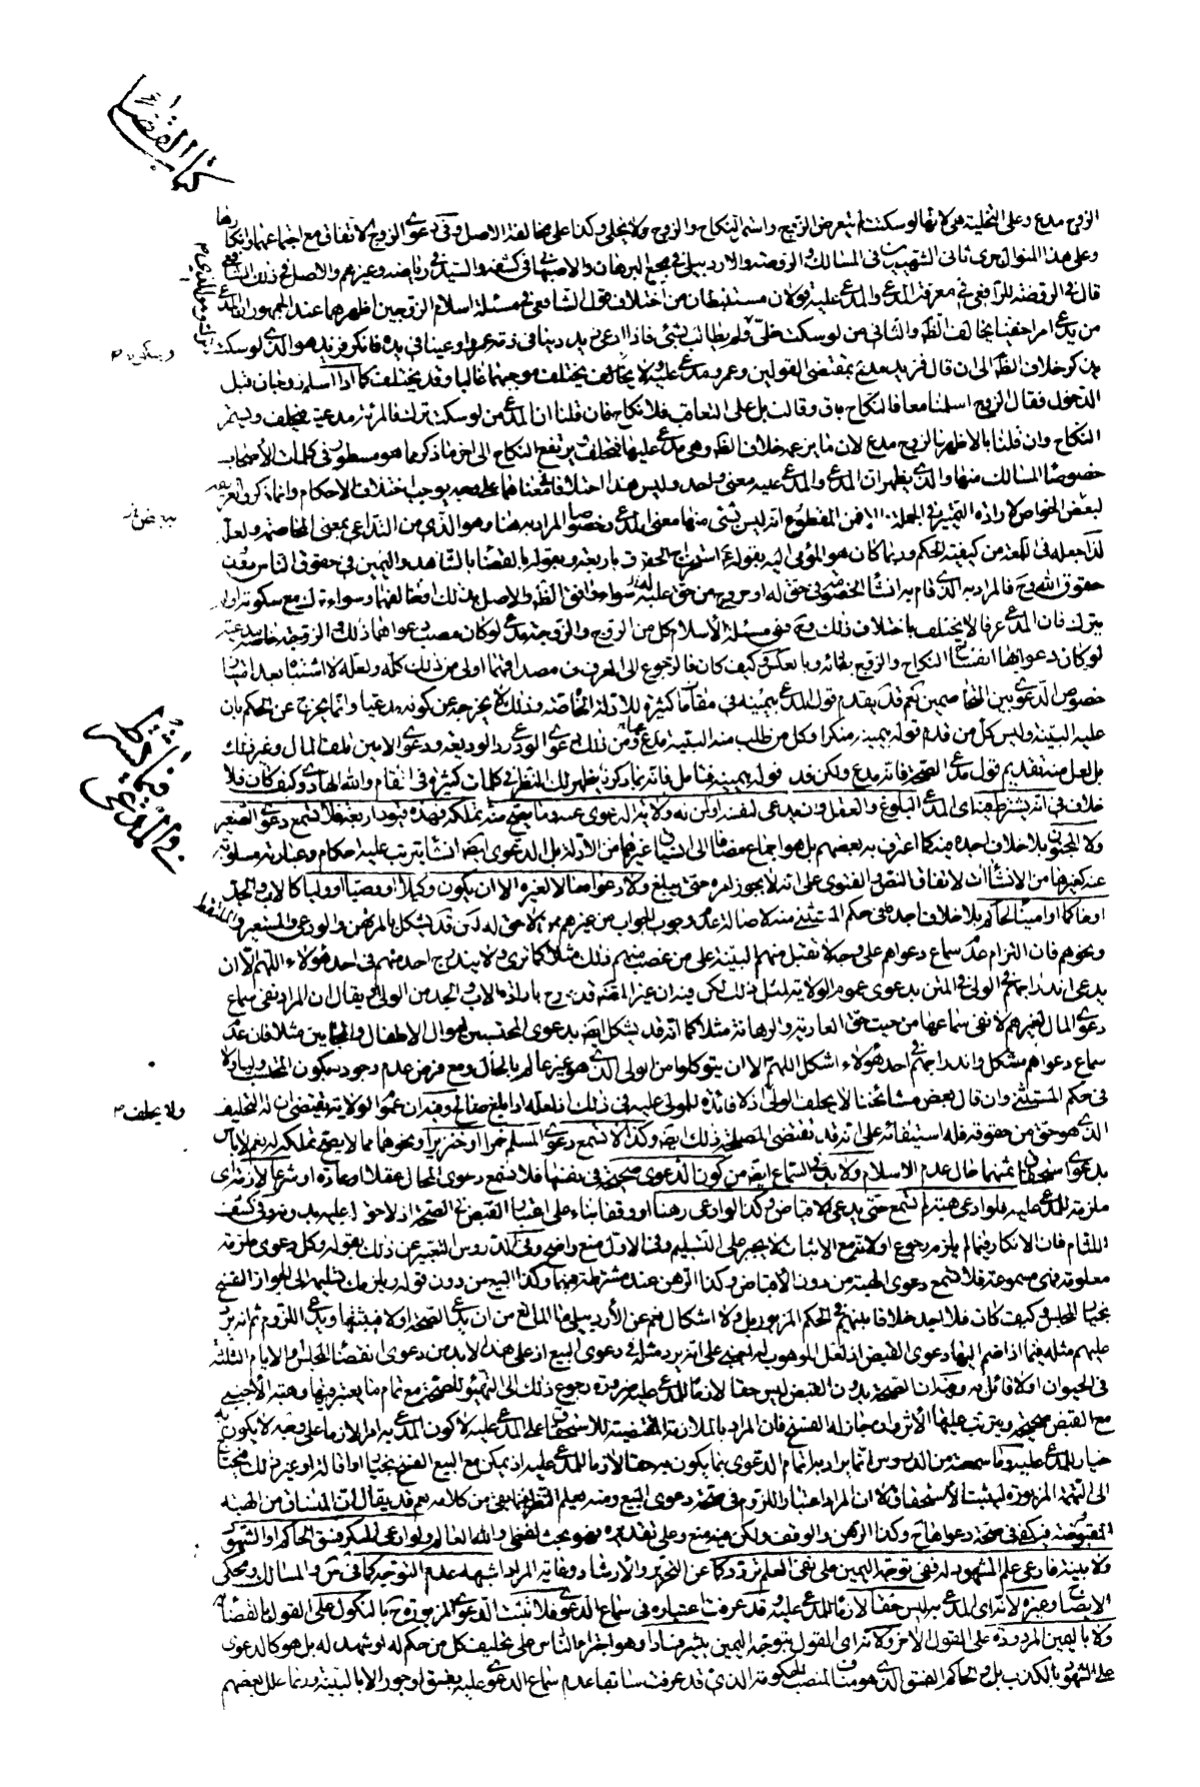 كتاب القضاء
الزوج مدع وعلى التخلية هي لانها لو سكتت لم يتعرض الزوج واستمر النكاح والزوج ولا يخلى وكذا على مخالفة الاصل وفي دعوى الزوج الاتفاق مع اجماعهما وانكارها
وعلى هذا المنوال جرى ثاني الشهيدين في المسالك والروضة والاردبيلي في مجمع البرهان والاصبهاني في كشفه والسيد في رياضه وغيرهم والاصل في ذلك الشافعي
قال في الروضة للرافعي في معرفة المدعي والمدعى عليه قولان مستنبطان من اختلاف قول الشافعي في مسئلة اسلام الزوجين اظهرهما عند الجمهور ان المدعي
من يدعي امرا خفيا يخالف الظاهر والثاني من لو سكت خلي ولم يطالب بشئ فاذا ادعى زيد دينا في ذمة عمرو او عينا في يده فانكر فزيد هو الذي لو سكت
يذكر خلاف الظاهر الى ان قال فزيد مدع بمقتضى القولين وعمرو مدعى عليه ولا يخالف يختلف موجبهما غالبا وقد يختلف كما اذا اسلم زوجان قبل
الدخول فقال الزوج اسلمنا معا فالنكاح باق وقالت بل على التعاقب فلا نكاح فان قلنا ان المدعي من لو سكت ترك فالمرئة مدعية فيحلف ويستمر
النكاح وان قلنا بالاظهر فالزوج مدع لان ما يزعمه خلاف الظاهر وهي مدعى عليها فتحلف ويرتفع النكاح الى اخر ما ذكر مما هو مسطور في كلمات الأصحاب
خصوصا المسالك منها والذي يظهر ان المدعي والمدعى عليه معنى واحد وليس هذا اختلافا في معناهما على وجه يوجب اختلاف الاحكام وانما ذكروا تعريفه
لبعض الخواص لارادة التمييز في الجملة
لذا جعله في اللمعة من كيفية الحكم وربما كان هو المومى اليه بقوله استخراج الحقوق باربعة وبقوله والقضاء بالشاهد واليمين في حقوق الناس دون
حقوق الله وح فالمراد به الذي قام به انشاء الخصومة في حق له او خروج من حق عليه سواء وافق الظاهر والاصل بذلك او خالفهما وسواء ترك مع سكوته او لم
يترك فان المدعي عرفا لا يختلف باختلاف ذلك وح ففي مسئلة الأسلام كل من الزوج والزوجة مدع لو كان مصب دعواهما ذلك والزوجة خاصة مدعية
لو كان دعواها انفساخ النكاح والزوج بقائه وبالعكس وكيف كان فالرجوع الى العرف في مصداقهما اولى من ذلك كله ولعله لا اشتباه بعد اثبات
خصوص الدعوى بين المتخاصمين نعم قد يقدم قول المدعي بيمينه في مقامات كثيرة للادلة الخاصة وذلك لا يخرجه عن كونه مدعيا وانما يخرج عن الحكم بان
عليه البينة وليس كل من قدم قوله بيمينه منكرا وكل من طلب منه البينة مدع ومن ذلك دعوى الودعي رد الوديعة ودعوى الامين تلف المال وغير ذلك
بل لعل منه تقديم قول مدعي الصحة فانه مدع ولكن قدم قوله بيمينه فتامل فانه بما ذكرنا يظهر لك النظر في كلمات كثيرة في المقام والله الهادي وكيف كان فلا
خلاف في انه يشترط في المدعي البلوغ والعقل وان يدعي لنفسه او لمن له ولاية الدعوى عنه وما يصح منه تملكه فهذه قيود اربعة فلا تسمع دعوى الصغير
ولا المجنون بلا خلاف اجده فيه كما اعترف به بعضهم بل هو اجماع مضافا الى انسياق غيرهما من الأدلة بل الدعوى ايضا انشاء يترتب عليه احكام وعبارته مسلوبة
عنه كغيرها من الانشاآت لاتفاق النص والفتوى على انه لا يجوز امره حتى يبلغ ولا دعواه مالا لغيره الا ان يكون وكيلا او وصيا او وليا كالاب والجد
او حاكما او امينا لحاكم بلا خلاف اجده في حكم المستثنى منه لاصالة عدم وجوب الجواب من غيرهم بما لا حق له لكن قد يشكل بالمرتهن والودعي والمستعير والملتقط
ونحوهم فان التزام عدم سماع دعواهم على وجه لا تقبل منهم البينة على من غصب منهم ذلك مثلا كما ترى ولا يندرج احد منهم في احد هؤلاء اللهم الا ان
يدعى اندراجهم في الولي في المتن بدعوى عموم الولاية لمثل ذلك لكن فيه ان غير المصنف قد صرح بارادة الاب والجد من الولي او يقال ان المراد نفي سماع
دعوى المال لغيرهم لا نفي سماعها من حيث حق العارية والرهانة مثلا كما انه قد يشكل ايضا بدعوى المحتسبين لاموال الاطفال والمجانين مثلا فان عدم
سماع دعواهم مشكل واندراجهم في احد هؤلاء اشكل اللهم الا ان يتوكلوا من الولي الذي هو غير عالم بالحال ومع فرض عدم وجوده يكون المحتسب وليا ولا
في حكم المستثنى وان قال بعض مشائخنا لا يحلف الولي اذ لا فائدة للمولى عليه في ذلك اذ لعله اذا بلغ صالح وفيه ان عموم الولاية يقتضي ان له التحليف
الذي هو حق من حقوقه فله استيفائه على انه قد تقتضي المصلحة ذلك ايضا وكذا لا تسمع دعوى المسلم خمرا او خنزيرا ونحوهما مما لا يصح تملكه له نعم لا باس
بدعوى استحقاق ثمنهما حال عدم الاسلام ولا بد في السماع ايضا من كون الدعوى صحيحة في نفسها فلا تسمع دعوى المحال عقلا او عادة او شرعا لازمة اي
ملزمة للمدعى عليه فلو ادعى هبة لم تسمع حتى يدعي الاقباض وكذا لو ادعى رهنا او وقفا بناء على اعتبار القبض في الصحة اذ لا حق له عليه بدونه وفي كشف
اللثام فان الانكار فيما لم يلزم رجوع او لانه مع الاثبات لا يجبر على التسليم وفي الاول منع واضح وفي الدروس التعبير عن ذلك بقوله وكل دعوى ملزمة
معلومة فهي مسموعة فلا تسمع دعوى الهبة من دون الأقباض وكذا الرهن عند مشترطه فيهما وكذا البيع من دون قوله ويلزمك تسليمه الي لجواز الفسخ
بخيار المجلس وكيف كان فلا اجد خلافا بينهم في الحكم المزبور بل ولا اشكال نعم عن الأردبيلي ما المانع من ان يدعي الصحة اولا فيثبتها ويدعي اللزوم ثم انه يرد
عليهم مثله فيما اذا ضم اليها دعوى القبض اذ لعل الموهوب له اجنبي على انه يرد مثله في دعوى البيع اذ على هذا لا بد من دعوى انقضاء المجلس والايام الثلثة
في الحيوان او لا قائل به وفيه ان الصحة بدون القبض ليس حقا لازما للمدعى عليه ضرورة رجوع ذلك الى التهيؤ للصحة مع تمام ما يعتبر فيها وهبة الأجنبي
مع القبض صحيحة ويترتب عليها الأثر وان جاز له الفسخ فان المراد بالملازمة المقتضية للاستحقاق على المدعى عليه لا كون المدعى به امرا لازما على وجه لا يكون به
خيار للمدعى عليه وما سمعته من الدروس انما يراد به اتمام الدعوى بما يكون به حقا لازما للمدعى عليه اذ يمكن مع البيع الفسخ بخيار او اقالة او غير ذلك فيحتاج
الى التتمة المزبورة ليثبت الاستحقاق لا ان المراد اعتبار اللزوم في صحة دعوى البيع ومنه يعلم النظر فيما بقي من كلامه نعم قد يقال ان المنساق من الهبة
المقبوضة فيكفي في صحة دعواها ح وكذا الرهن والوقف ولكن فيه منع وعلى تقديره فهو بحث لفظي والله العالم ولو ادعى المنكر فسق الحاكم او الشهود
ولا بينة فادعى علم المشهود له ففي توجه اليمين على نفي العلم تردد كما عن التحرير والارشاد وغاية المراد اشبهه عدم التوجه كما في س والمسالك ومحكي
الايضاح وغيره لانه اي المدعى به ليس حقا لازما للمدعى عليه وقد عرفت اعتباره في سماع الدعوى فلا تثبت الدعوى المزبورة ح بالنكول على القول بالقضاء به
ولا باليمين المردودة على القول الاخر ولانه اي القول بتوجه اليمين يثير فسادا وهو اجتراء الناس على تحليف كل من حكم له لو شهد له بل هو كالدعوى
على الشهود بالكذب بل وعلى الحاكم الفسق الذي هو مناف لمنصب الحكومة الذي قد عرفت سابقا عدم سماع الدعوى عليه بفسق او جور الا بالبينة وربما علل بعضهم
ويسكن م
فيما يشترط في المدعي
ولا يحلف م